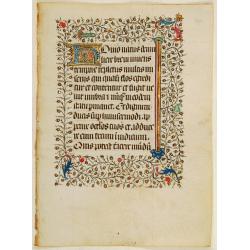 Homo natus de mu
liere brevi vivens
tempore repletur multis mi
seriis qui quasi flos egredi
tur et conteritur et fugit ve
lut umbra et in eodem
statu permanet. Et dignum
ducis sup huiuscemodi ap
perire oculos tuos et adduce
re eum tecum in iudicium
Quis potest facere mūdū